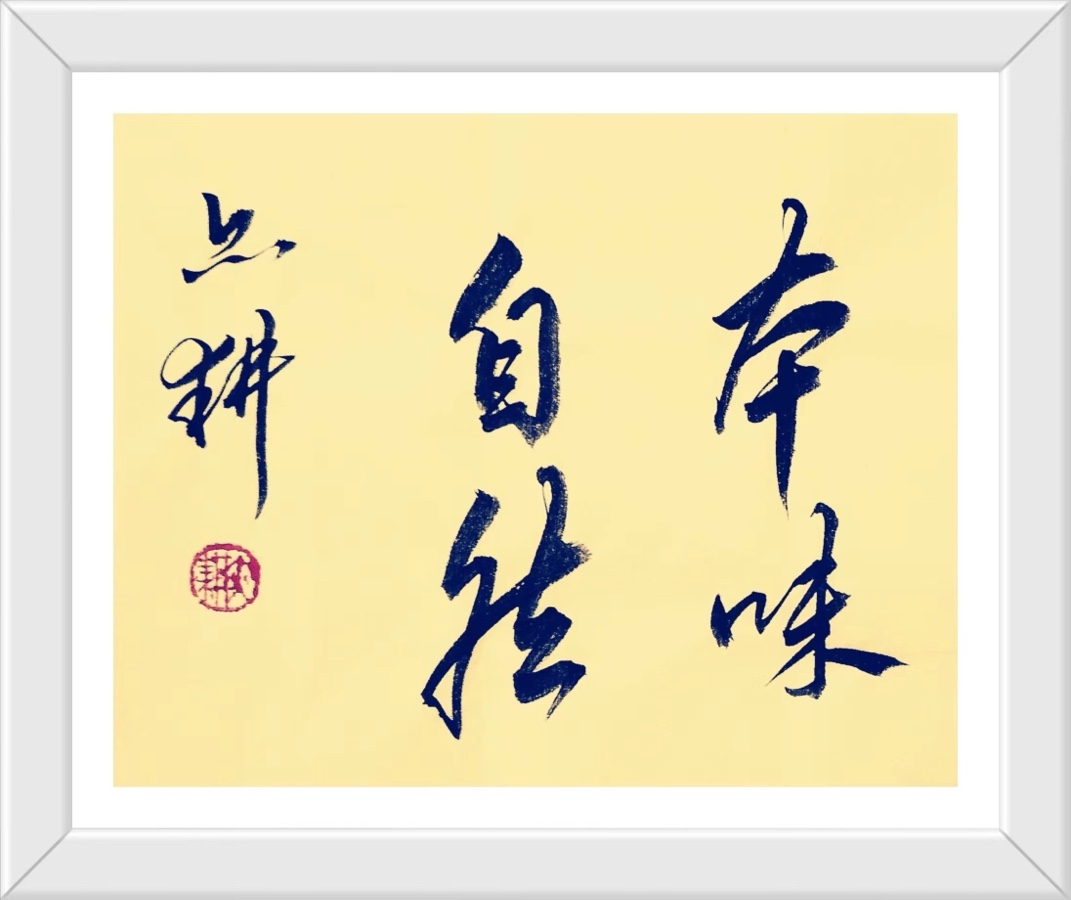 本味
自然
点耕